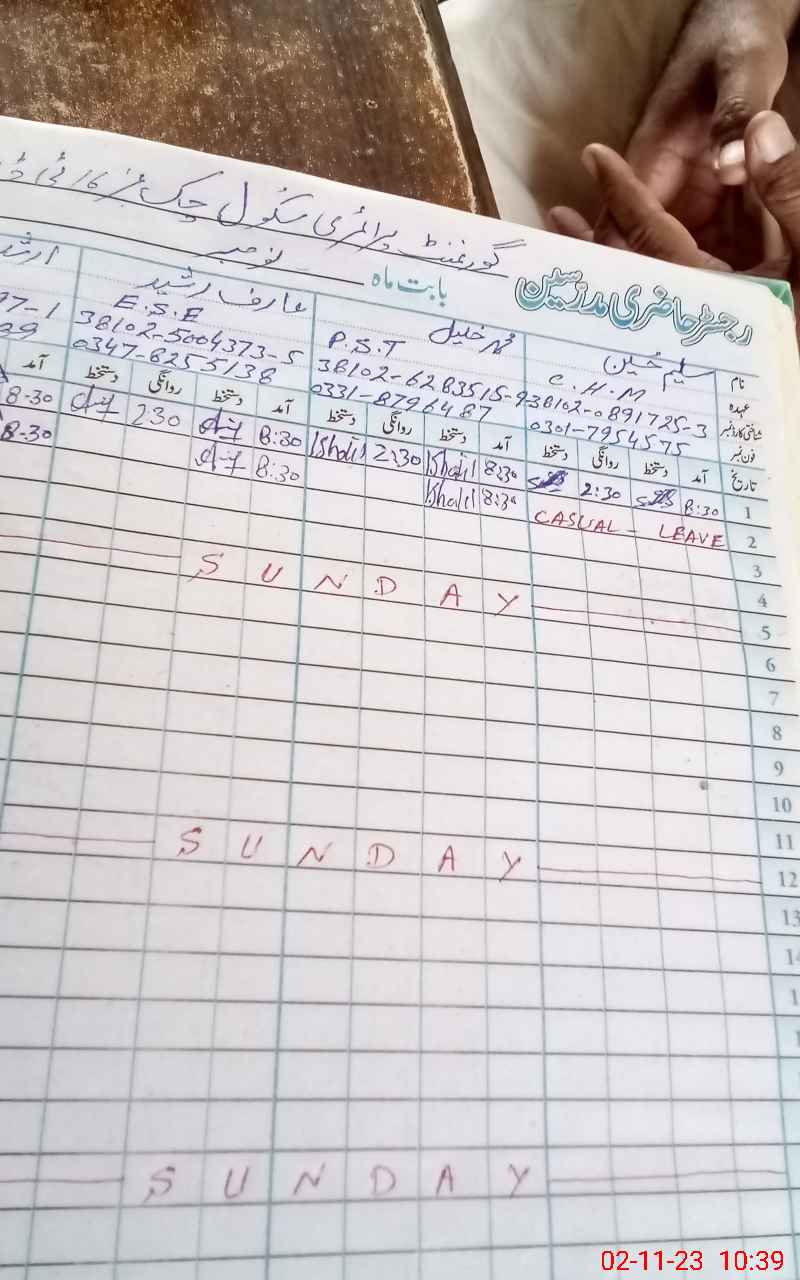 گورنمنٹ پرائمری سکول چاک نمبر 16
رجسٹر حاضری مدرسین بابت ماہ نومبر
نام سلیم حسین محمد خلیل عارف رشید
عہدہ C.H.M P.S.T E.S.E
شناختی کارڈ نمبر 38102-0891725-3 38102-6283515-9 38102-5004373-5 97-1
فون نمبر 0301-7954575 0331-8796487 0347-8255138 99
تاریخ آمد دستخط روانگی دستخط آمد دستخط روانگی دستخط آمد دستخط روانگی دستخط آمد
1 8:30 2:30 8:30 Khalil 2:30 Khalil 8:30 2:30 8-30
2 CASUAL - LEAVE 8:30 Khalil 8:30 8-30
3
4
5 SUNDAY
6
7
8
9
10
11
12 SUNDAY
13
14
1
SUNDAY
02-11-23 10:39